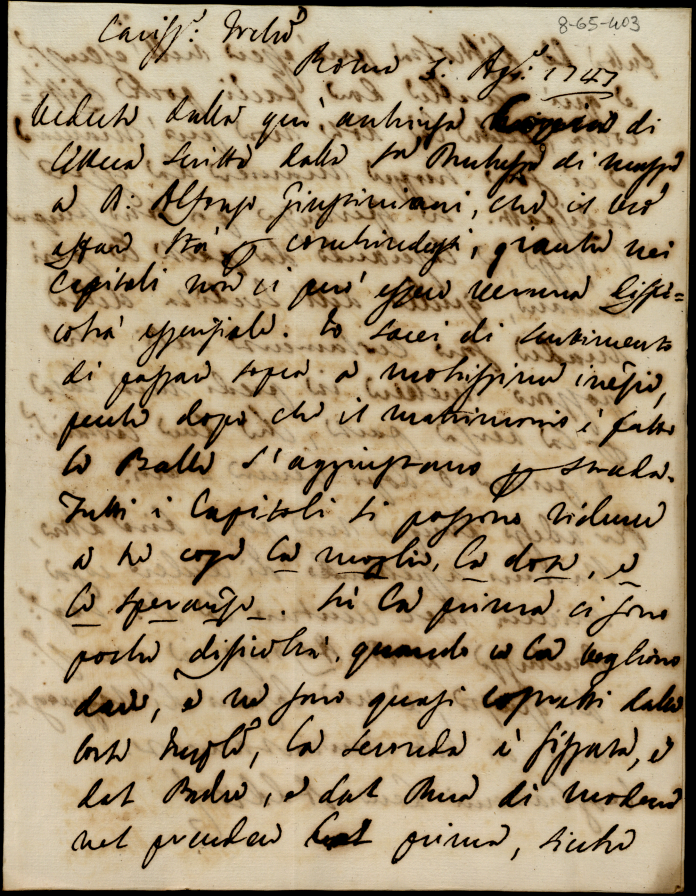 8-65-403
Cariss.º Frelo
Roma 5: Ag.º 1747
Vedrete dalla quì annessa Coppia di
lettera scritta dalla S.ra Duchessa di Massa
a D: Alfonso Giustiniani, che il mio
affare stà p conchiudersi, giacchè nei
Capitoli non ci può essere veruna diffi=
coltà essenziale. Io sarei di sentimento
di passar sopra a moltissime inezie,
perche dopo che il matrimonio è fatto
le Balle s'aggiustano p strada.
Tutti i Capitoli si possono ridurre
a tre cose La moglie, la dote, e
le speranze. Sù la prima ci sono
poche difficoltà, quando ce la vogliono
dare, e ne sono quasi costretti dalla
Corte, la seconda è fissata, e
dal Padre, e dal Duca di Modena
nel prendere la prima, sicche